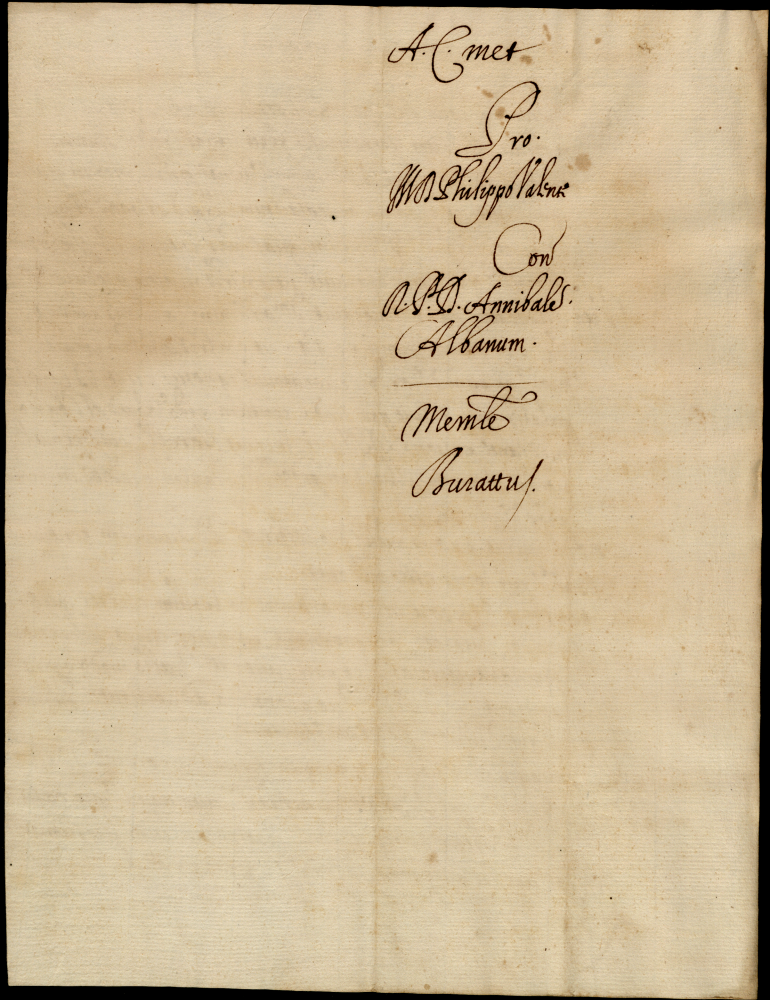 A. C. met
Pro.
Philippo Valente
Con
R. P. D. Annibalem
Albanum.
Memle
Burattus.